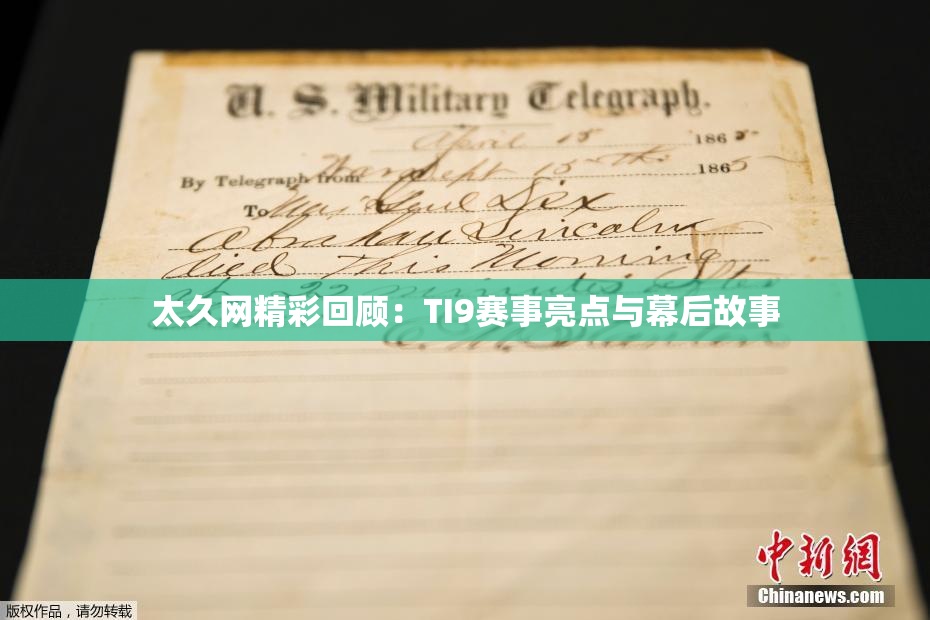 U. S. Military Telegraph.
April 15 1865
By Telegraph from War Dept 15th 1865
To Maj Genl Dix
Abraham Lincoln
died This Morning
at 22 minutes after
太久网精彩回顾：TI9赛事亮点与幕后故事
E. M. Stanton
中新网
Chinanews.com
版权作品，请勿转载